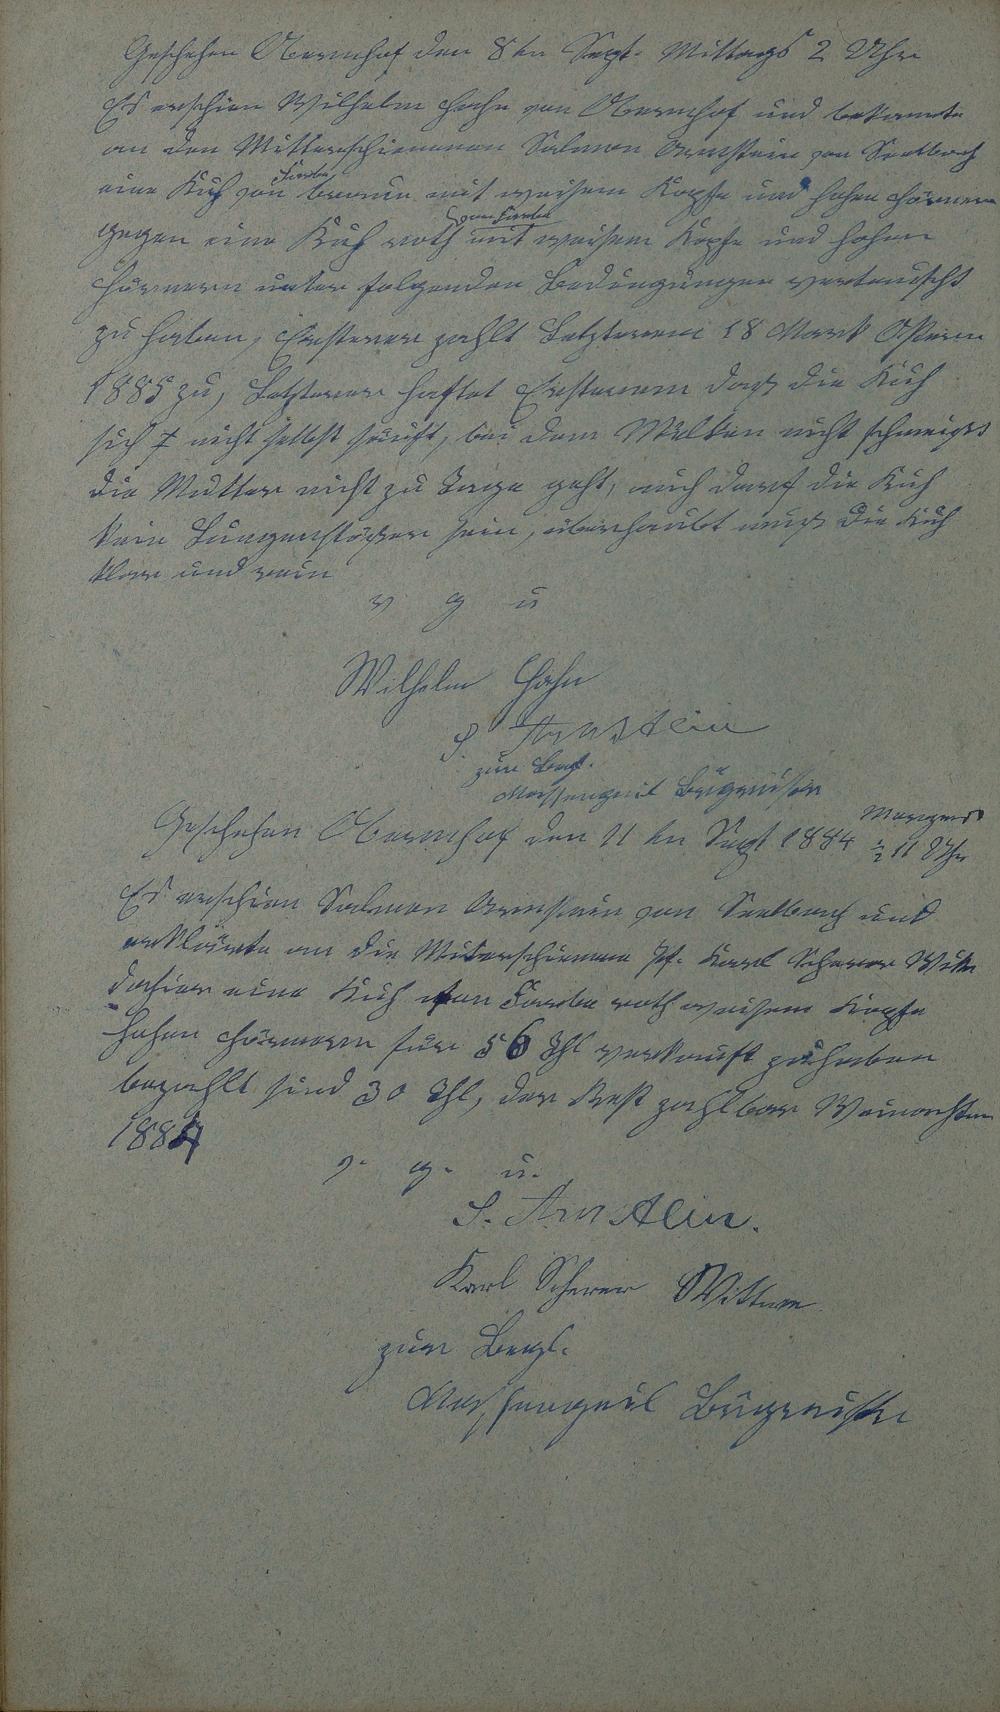 Geschehen Obernhof den 8tn Sept. Mittags 2 Uhr
Es erschien Wilhelm Hahn von Obernhof und bekannte
an den Miterschienenen Salmon Arnstein von Seelbach
eine Kuh von Farbe braun mit weisem Kopfe und hohen Hörnern
gegen eine Kuh roth von Farbe mit weisem Kopfe und hohen
Hörnern unter folgenden Bedingungen vertauscht
zu haben, Ersterer zahlt Letzterem 18 Mark Ostern
1885 zu, Letzterer haftet Ersterem daß die Kuh
sich nicht selbst säuft, bei dem Melken nicht schmeißt
die Mutter nicht zu Tage geht, auch darf die Kuh
kein sein, überhaubt muß die Kuh
klar und rein
v g u
Wilhelm Hahn
S Arnstein
zur Begl.
Massengeil Bürgermeister
Geschehen Obernhof den 11tn Sept 1884 Morgens ½ 11 Uhr
Es erschien Salmon Arnstein von Seelbach und
erklärte an die Miterschienene Karl Scherer Witw
dahier eine Kuh von Farbe roth weisem Kopfe
hohen Hörnern für 56 Thl verkauft zu haben
bezahlt sind 30 Thl, der Rest zahlbar Weinachten
1884
v. g. u.
S. Arnstein.
Karl Scherer Wittwe
zur Begl.
Massengeil Bürgermeister